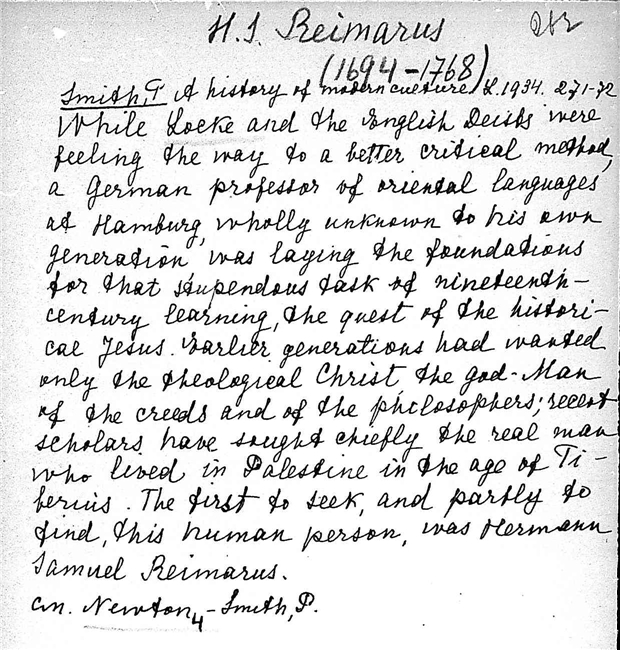 H. S. Reimarus
(1694-1768)
Smith, P A history of modern culture L. 1934. 271-72
While Locke and the English Deists were
feeling the way to a better critical method,
a German professor of oriental languages
at Hamburg, wholly unknown to his own
generation, was laying the foundations
for that stupendous task of nineteenth-
century learning, the quest of the histori-
cal Jesus. Earlier generations had wanted
only the theological Christ, the god-Man
of the creeds and of the philosophers; recent
scholars have sought chiefly the real man
who lived in Palestine in the age of Ti-
berius. The first to seek, and partly to
find, this human person, was Hermann
Samuel Reimarus.
Newton4 - Smith, P.